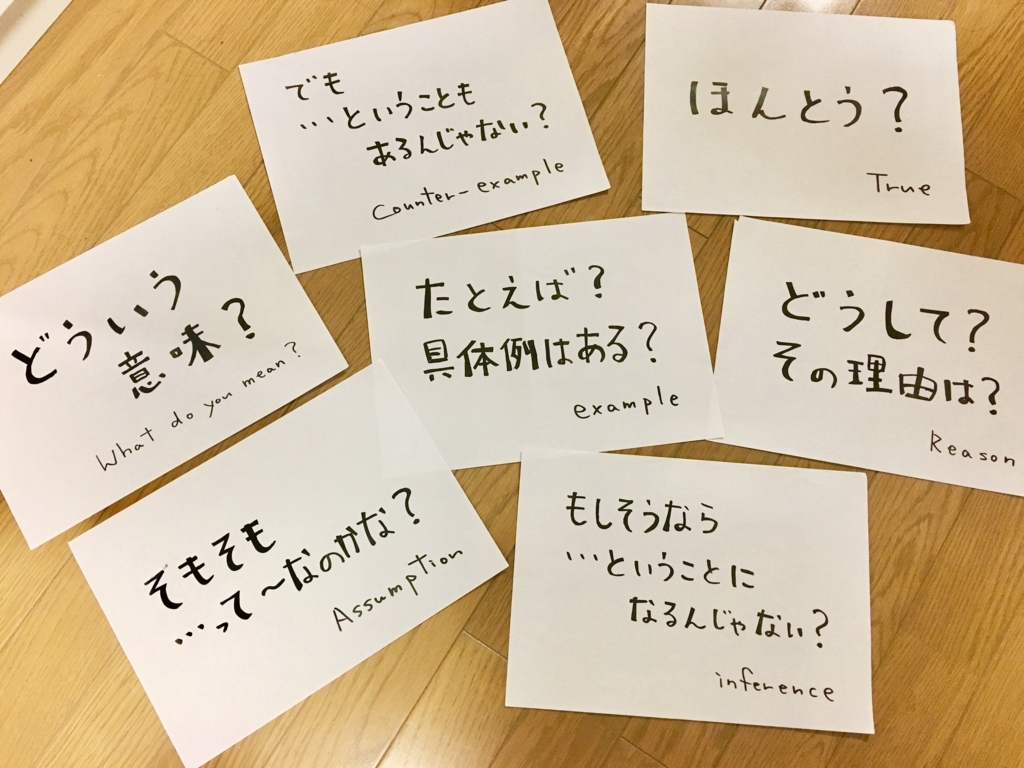 でも
…ということも
あるんじゃない?
Counter-example
ほんとう?
True
どういう
意味?
What do you mean?
たとえば?
具体例はある?
example
どうして?
その理由は?
Reason
そもそも
…って〜なのかな?
Assumption
もしそうなら
…ということに
なるんじゃない?
inference